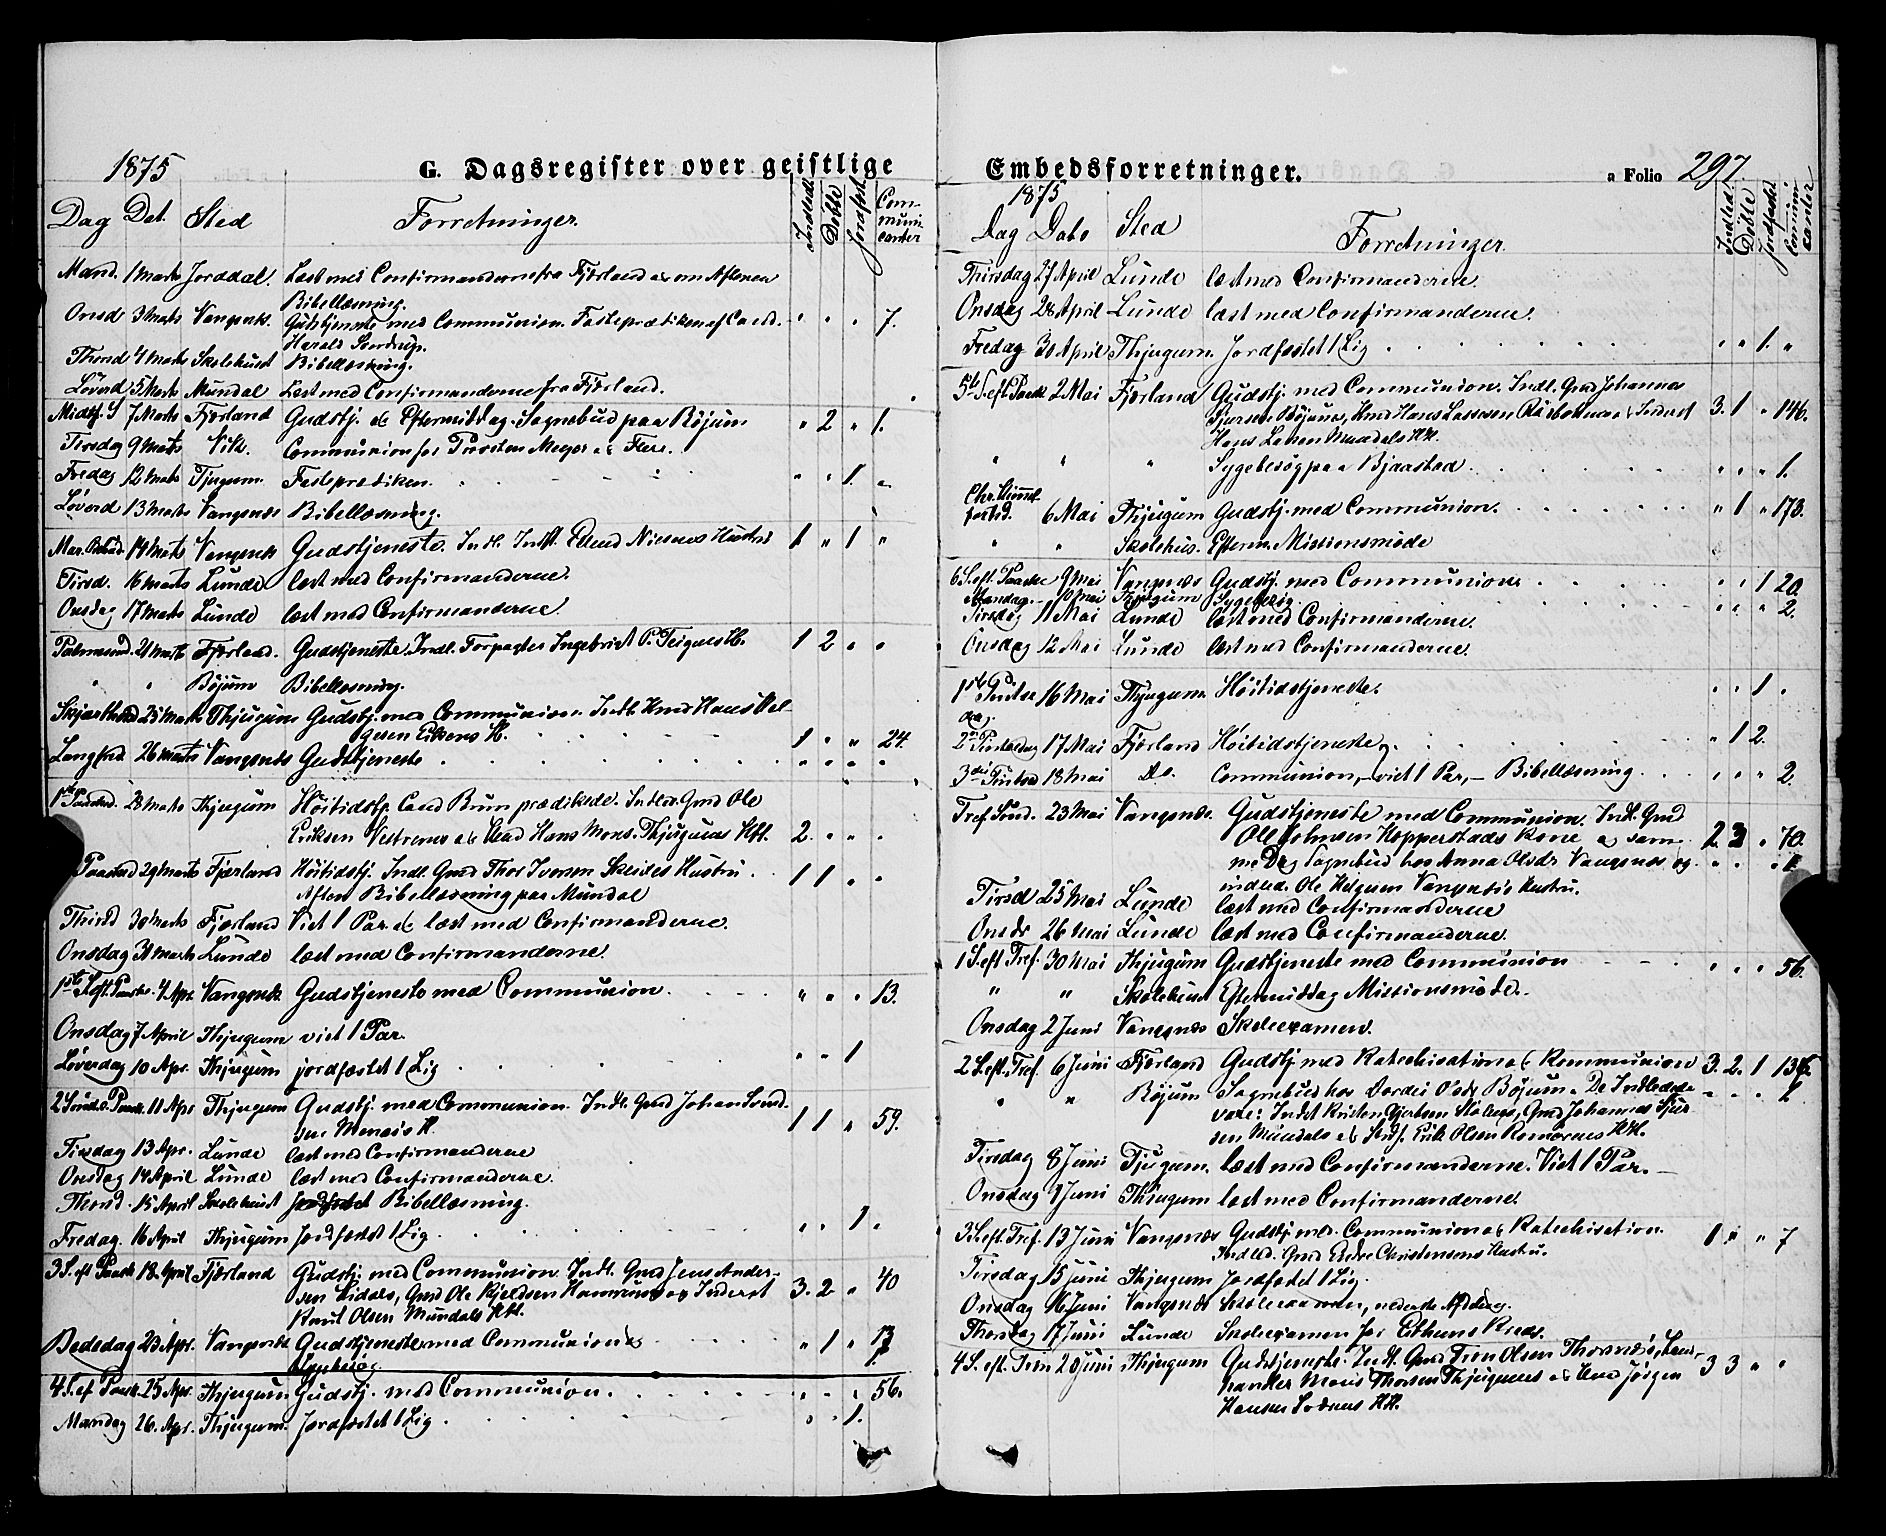 1875
G. Dagsregister over geistlige
Dag Dat. Sted Forretninger. Indledt Døbte Jordfæst Communicanter
Mand. 1 Marts Jorddal. Læst med Confirmanderne fra Fjærland & om Aftenen
Bibellæsning.
Onsd 3 Marts Vangsnæs. Gudstjeneste med Communion. Fasteprædiken af Cand. " " " 7.
Harald
Thorsd 4 Marts Skolehuset Bibellæsning.
Løverd 5 Marts Mundal Læst med Confirmanderne fra Fjærland.
Midf. S 7 Marts Fjærland Gudstj. & Eftermiddag. Sognebud paa Bøjum " 2 " 1.
Tirsdag 9 Marts Vik. Communion for Thorsten Meyer & Flere.
Fredag 12 Marts Tjugum. Fasteprædiken. " " 1 "
Løverd 13 Marts Vangsnæs Bibellæsning.
Mar. Bebud. 14 Marts Vangsnæs Gudstjeneste. Indl. Indst. Hustru 1 " 1 "
Tirsd. 16 Marts Lunde læst med Confirmanderne.
Onsdag 17 Marts Lunde læst med Confirmanderne.
Palmesund. 21 Marts Fjærland. Gudstjeneste. Indl. Forpagter Ingebrigt P. H. 1 2 " "
" " Bøjum Bibellæsning.
Skjærthorsd 25 Marts Thjugum Gudstj. med Communion. Indl. Hmd Hans Hel-
gesen Eitsens H. 1 " " 24.
Langfred. 26 Marts Vangsnæs Gudstjeneste " " " "
1ste Paaskd. 28 Marts Thjugum Høitidstj. Cand Brun prædikede. Indled. Gmd Ole
Eriksen & Hans Mons. Thjugums Hst. 2. " " "
Paaskd 29 Marts Fjærland Høitidstj. Indl. Gmd Thor Iversen Skeides Hustru. 1 1 " "
Aften Bibellæsning paa Mundal
Thirsd 30 Marts Fjærland Viet 1 Par & læst med Confirmanderne.
Onsdag 31 Marts Lunde læst med Confirmanderne.
1ste S. eft. Paaske. 4 Apr. Vangsnæs Gudstjeneste med Communion. " " " 13.
Onsdag 7 April Thjugum viet 1 Par.
Løverdag 10 Apr. Thjugum jordfæstet 1 Lig " " 1
2 Sønd. e. Paask. 11 Apr Thjugum Gudstj. med Communion. Indl. Gmd Johan
sen H. 1 1 " 59.
Tirsdag 13 Apr. Lunde læst med Confirmanderne
Onsdag 14 April Lunde læst med Confirmanderne.
Thorsd. 15 April Skolehuset Bibellæsning.
Fredag. 16 April Thjugum Jordfæstet 1 Lig. " " 1 "
3 S. eft Paask 18 April Fjærland Gudstj. med Communion. Indl. Gmd Jens Ander-
sen Lidals, Gmd Ole Kjeldsen & Inderst 3. 2. " 40
Knut Olsen Mundals Hst.
Bededag 23 Apr. Vangsnæs Gudstjeneste med Communion & " 1 "
Sygebesøg
4. S. ef Paask 25 Apr. Thjugum Gudstj. med Communion. " " " 56.
Mandag 26. Apr. Thjugum. Jordfæstet 1 Lig " " 1.
Embedsforretninger.
a Folio 297
1875
Dag Dato Sted Forretninger. Indledet Døbte Jordfæstet Communicanter
Thirsdag 27 April Lunde læst med Confirmanderne.
Onsdag 28 April Lunde læst med Confirmanderne.
Fredag 30 April Thjugum. Jordfæstet 1 Lig " " 1. "
5te S. eft Paask 2 Mai Fjærland Gudstj. med Communion. Indl. Gmd Johannes
Sjursen Bøjums, Hmd Hans Lassesen & Inderst 3. 1 " 146.
Hans Larsen Mundals HH.
" " " Sygebesøg paa Bjaastad. " " " 1.
Chr. Himmelfartsd. 6 Mai Thjugum Gudstj. med Communion. " 1 " 173.
" " Skolehus. Efterm. Missionsmøde
6 S. eft. Paaske 9 Mai Vangsnæs Gudstj. med Communion " " 1 20.
Mandag 10 Mai Thjugum Sygebesøg " " " 2.
Tirsdag 11 Mai Lunde læst med Confirmanderne.
Onsdag 12 Mai Lunde læst med Confirmanderne.
1ste Pintsedag. 16 Mai Thjugum. Høitidstjeneste. " " 1 "
2n Pintsedag 17 Mai Fjærland Høitidstjeneste. " 1 2.
3die Pintsed 18 Mai Do. Communion, – viet 1 Par, – Bibellæsning. " " " 2
Tref Sønd. 23 Mai Vangsnæs. Gudstjeneste med Communion. Indl. Gmd
Ole Johnsen Hopperstads Kone & sam- 2. 3 " 70.
me Dag Sognebud hos Anna Olsdr Vangsnæs og " " " 1
indled. Ole Helgesen Vangsnæs Hustru.
Tirsd 25 Mai Lunde læst med Confirmanderne
Onsd 26 Mai Lunde læst med Confirmanderne.
1 S. eft Tref. 30 Mai Thjugum Gudstjeneste med Communion " " " 56.
" " Skolehuset Eftermiddag Missionsmøde.
Onsdag 2 Juni Vangsnæs Skoleexamen.
2 S. eft. Tref. 6 Juni Fjærland Gudstj. med Katechisation & Kommunion 3. 2. 1
" " Bøjum Sognebud hos Bøjum. De Indledede " " "
vare: Indst Kristen & Gmd Johannes Sjur-
sen Mundals & Indst. Erik Olsen HH.
Tirsdag 8 Juni Tjugum. læst med Confirmanderne. Viet 1 Par. –
Onsdag 9 Juni Thjugum læst med Confirmanderne.
3 S. eft. Tref. 13 Juni Vangsnæs Gudstj med Communion & Katechisation. 1 " " 7
Indled. Gmd Endre Christensens Hustru.
Tirsdag 15 Juni Thjugum Jordfæstet 1 Lig.
Onsdag 16 Juni Vangsnæs Skoleexamen, nederste Afdeling.
Thorsdag 17 Juni Lunde Skoleexamen for Kreds.
4 S. eft. Trin 20 Juni Thjugum Gudstjeneste. Indl. Gmd Olsen 3 3 " "
handler Mons Thorsen Thjugums & Hmd Jørgen
Hansen HH.